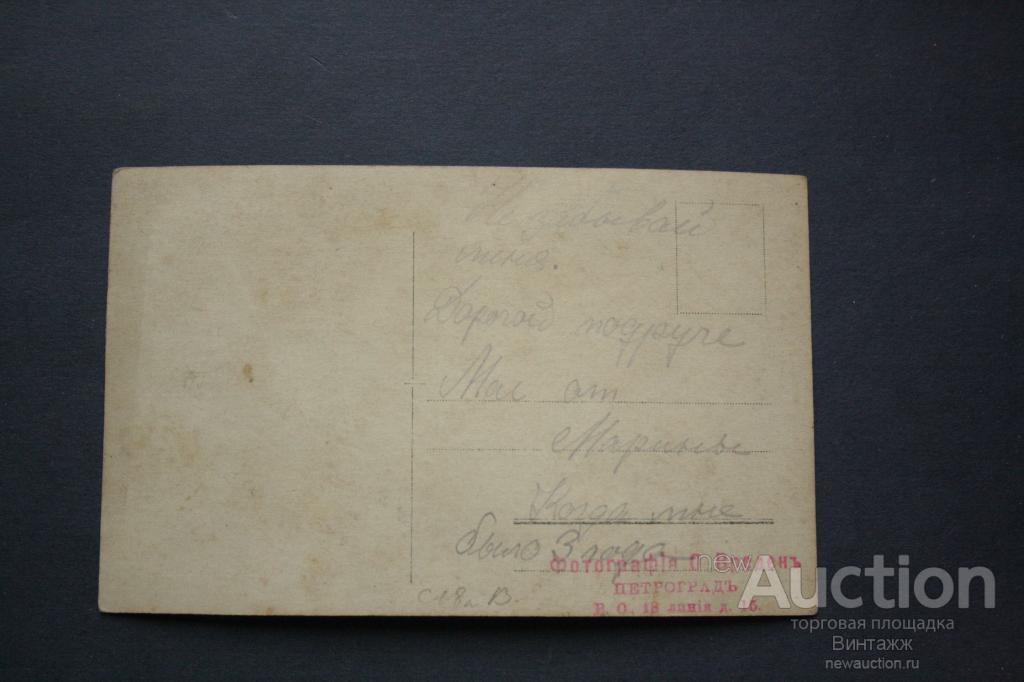 Не забывай
меня.
Дорогой подруге
Мае от
Марины
Когда мне
было 3 года
Фотографія
ПЕТРОГРАДЪ
В. О. 18 линія д.
c18л B.
newAuction
торговая площадка
Винтажж
newauction.ru